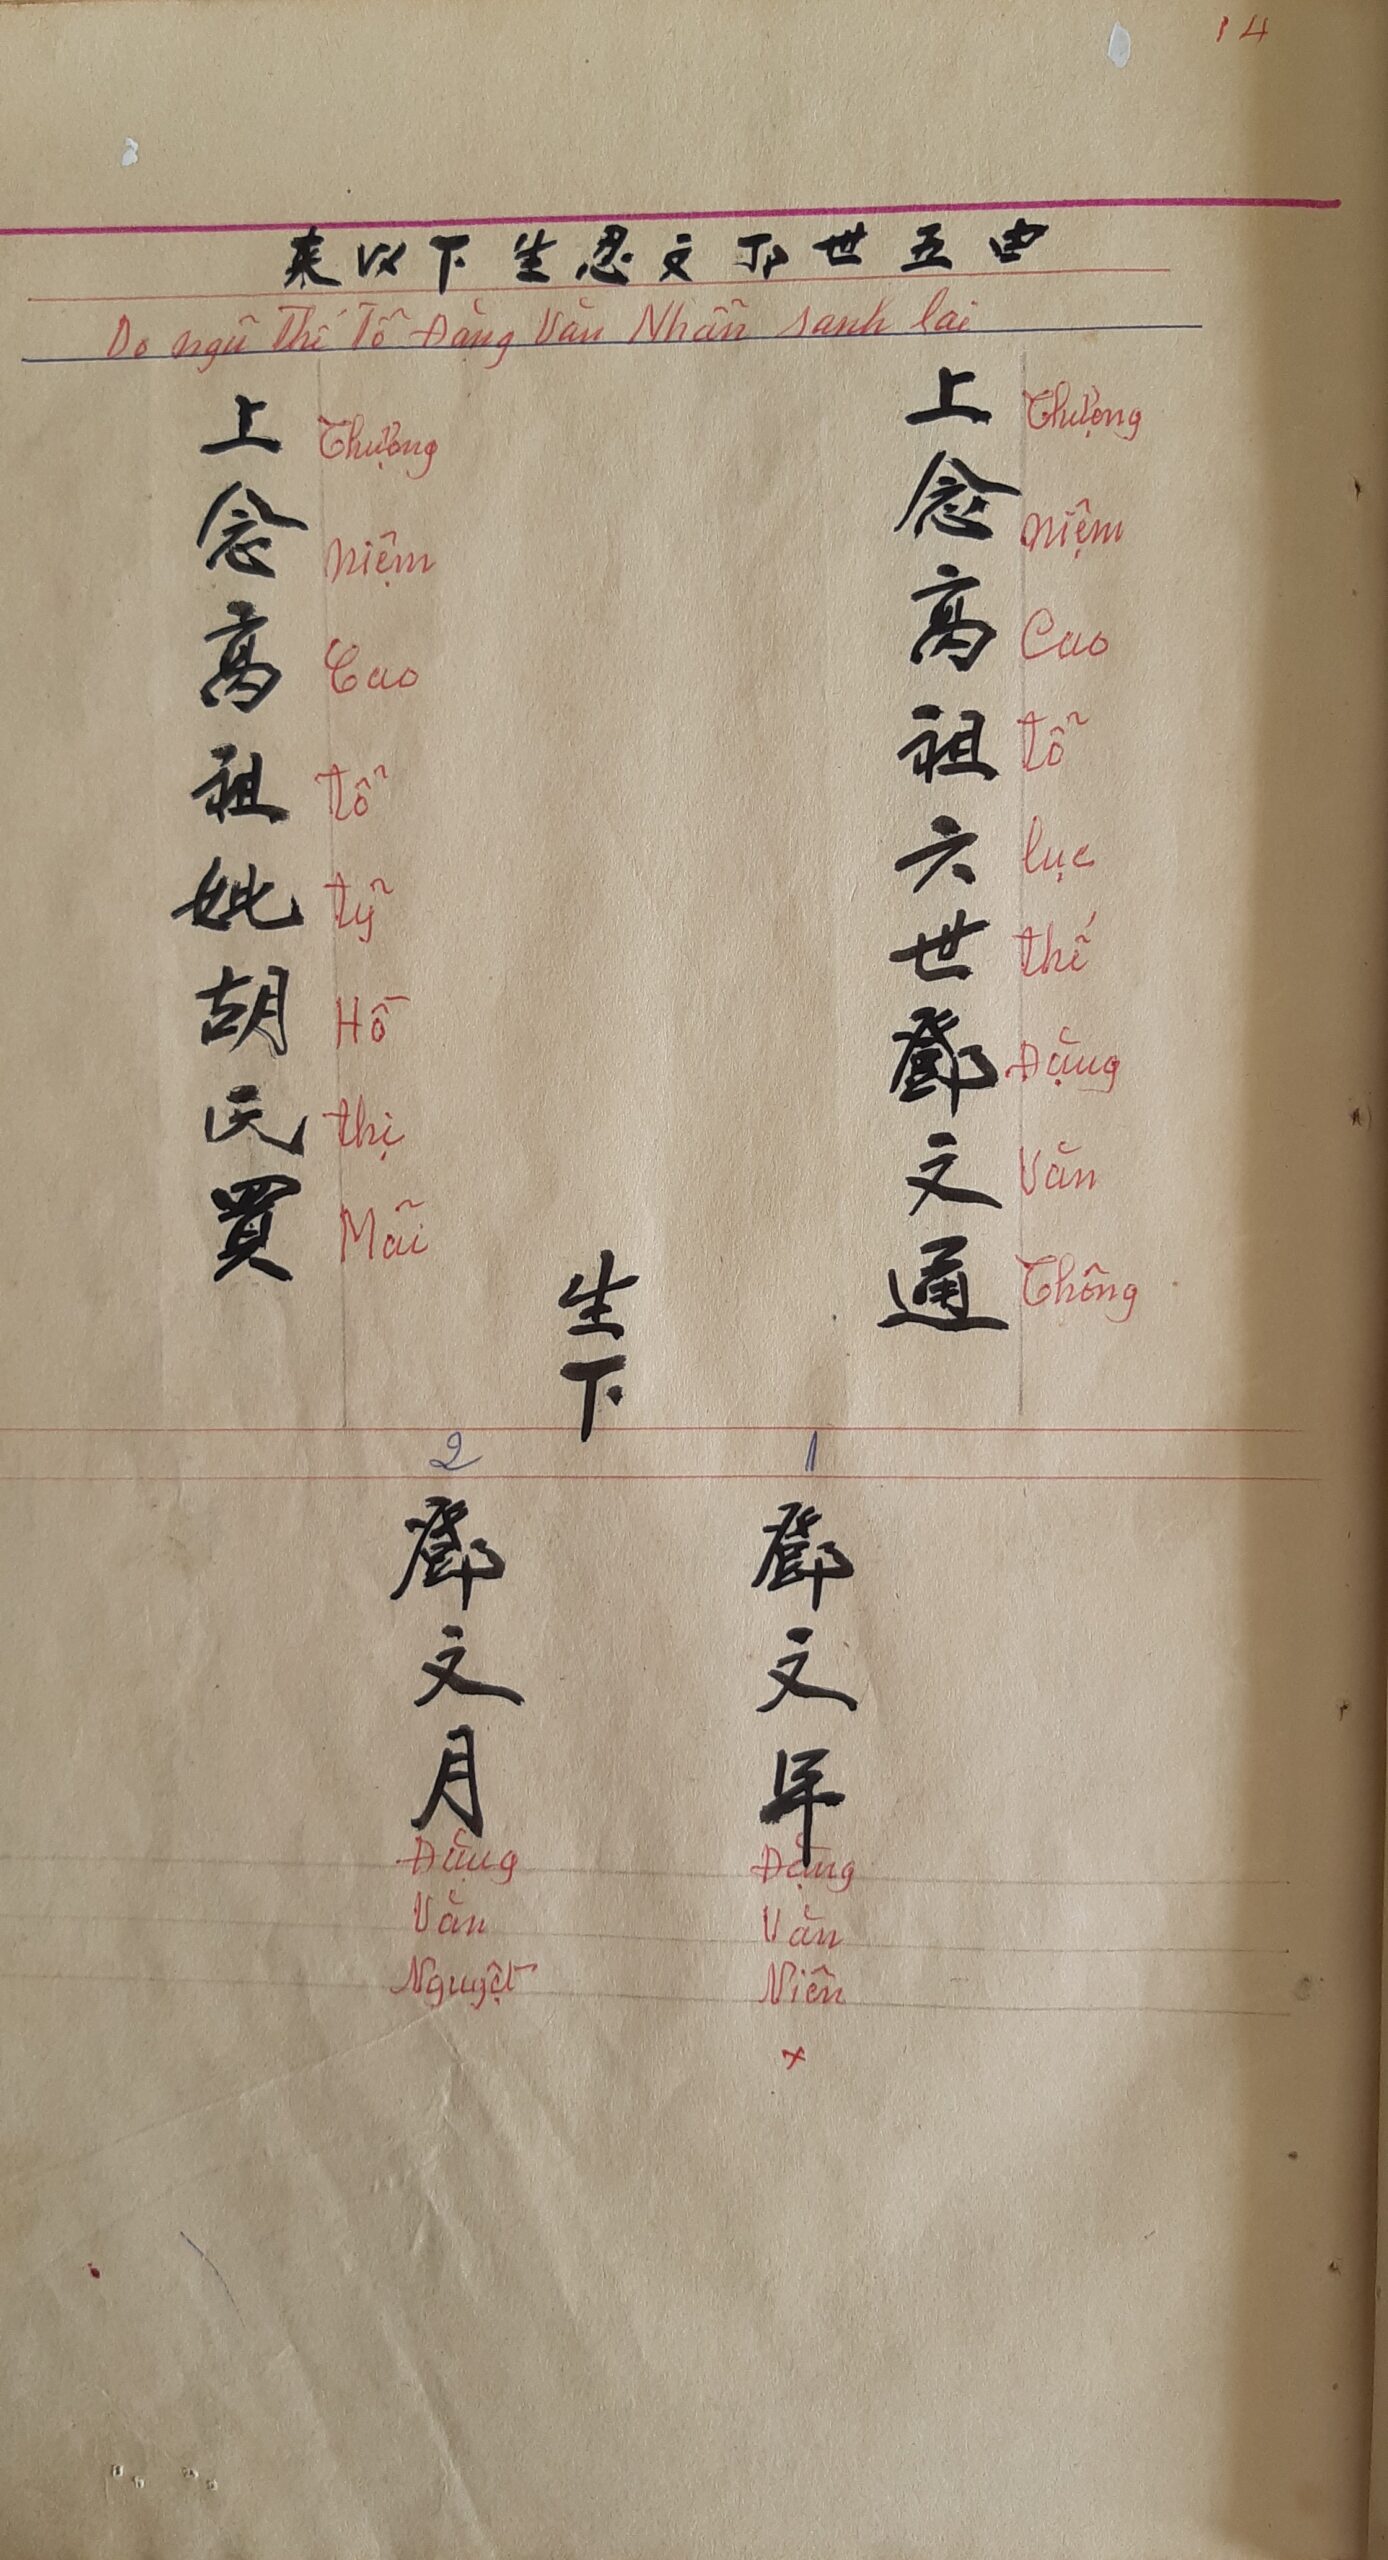 14
由五世邓文忍生下以来
Do ngũ Thế Tổ Đặng Văn Nhẫn sanh lai
上念高祖六世鄧文通
Thượng
niệm
Cao
tổ
lục
thế
Đặng
Văn
Thông
上念高祖妣胡氏買
Thượng
niệm
Cao
tổ
tỷ
Hồ
thị
Mãi
生下
1
鄧文年
Đặng
Văn
Niên
x
2
鄧文月
Đặng
Văn
Nguyệt